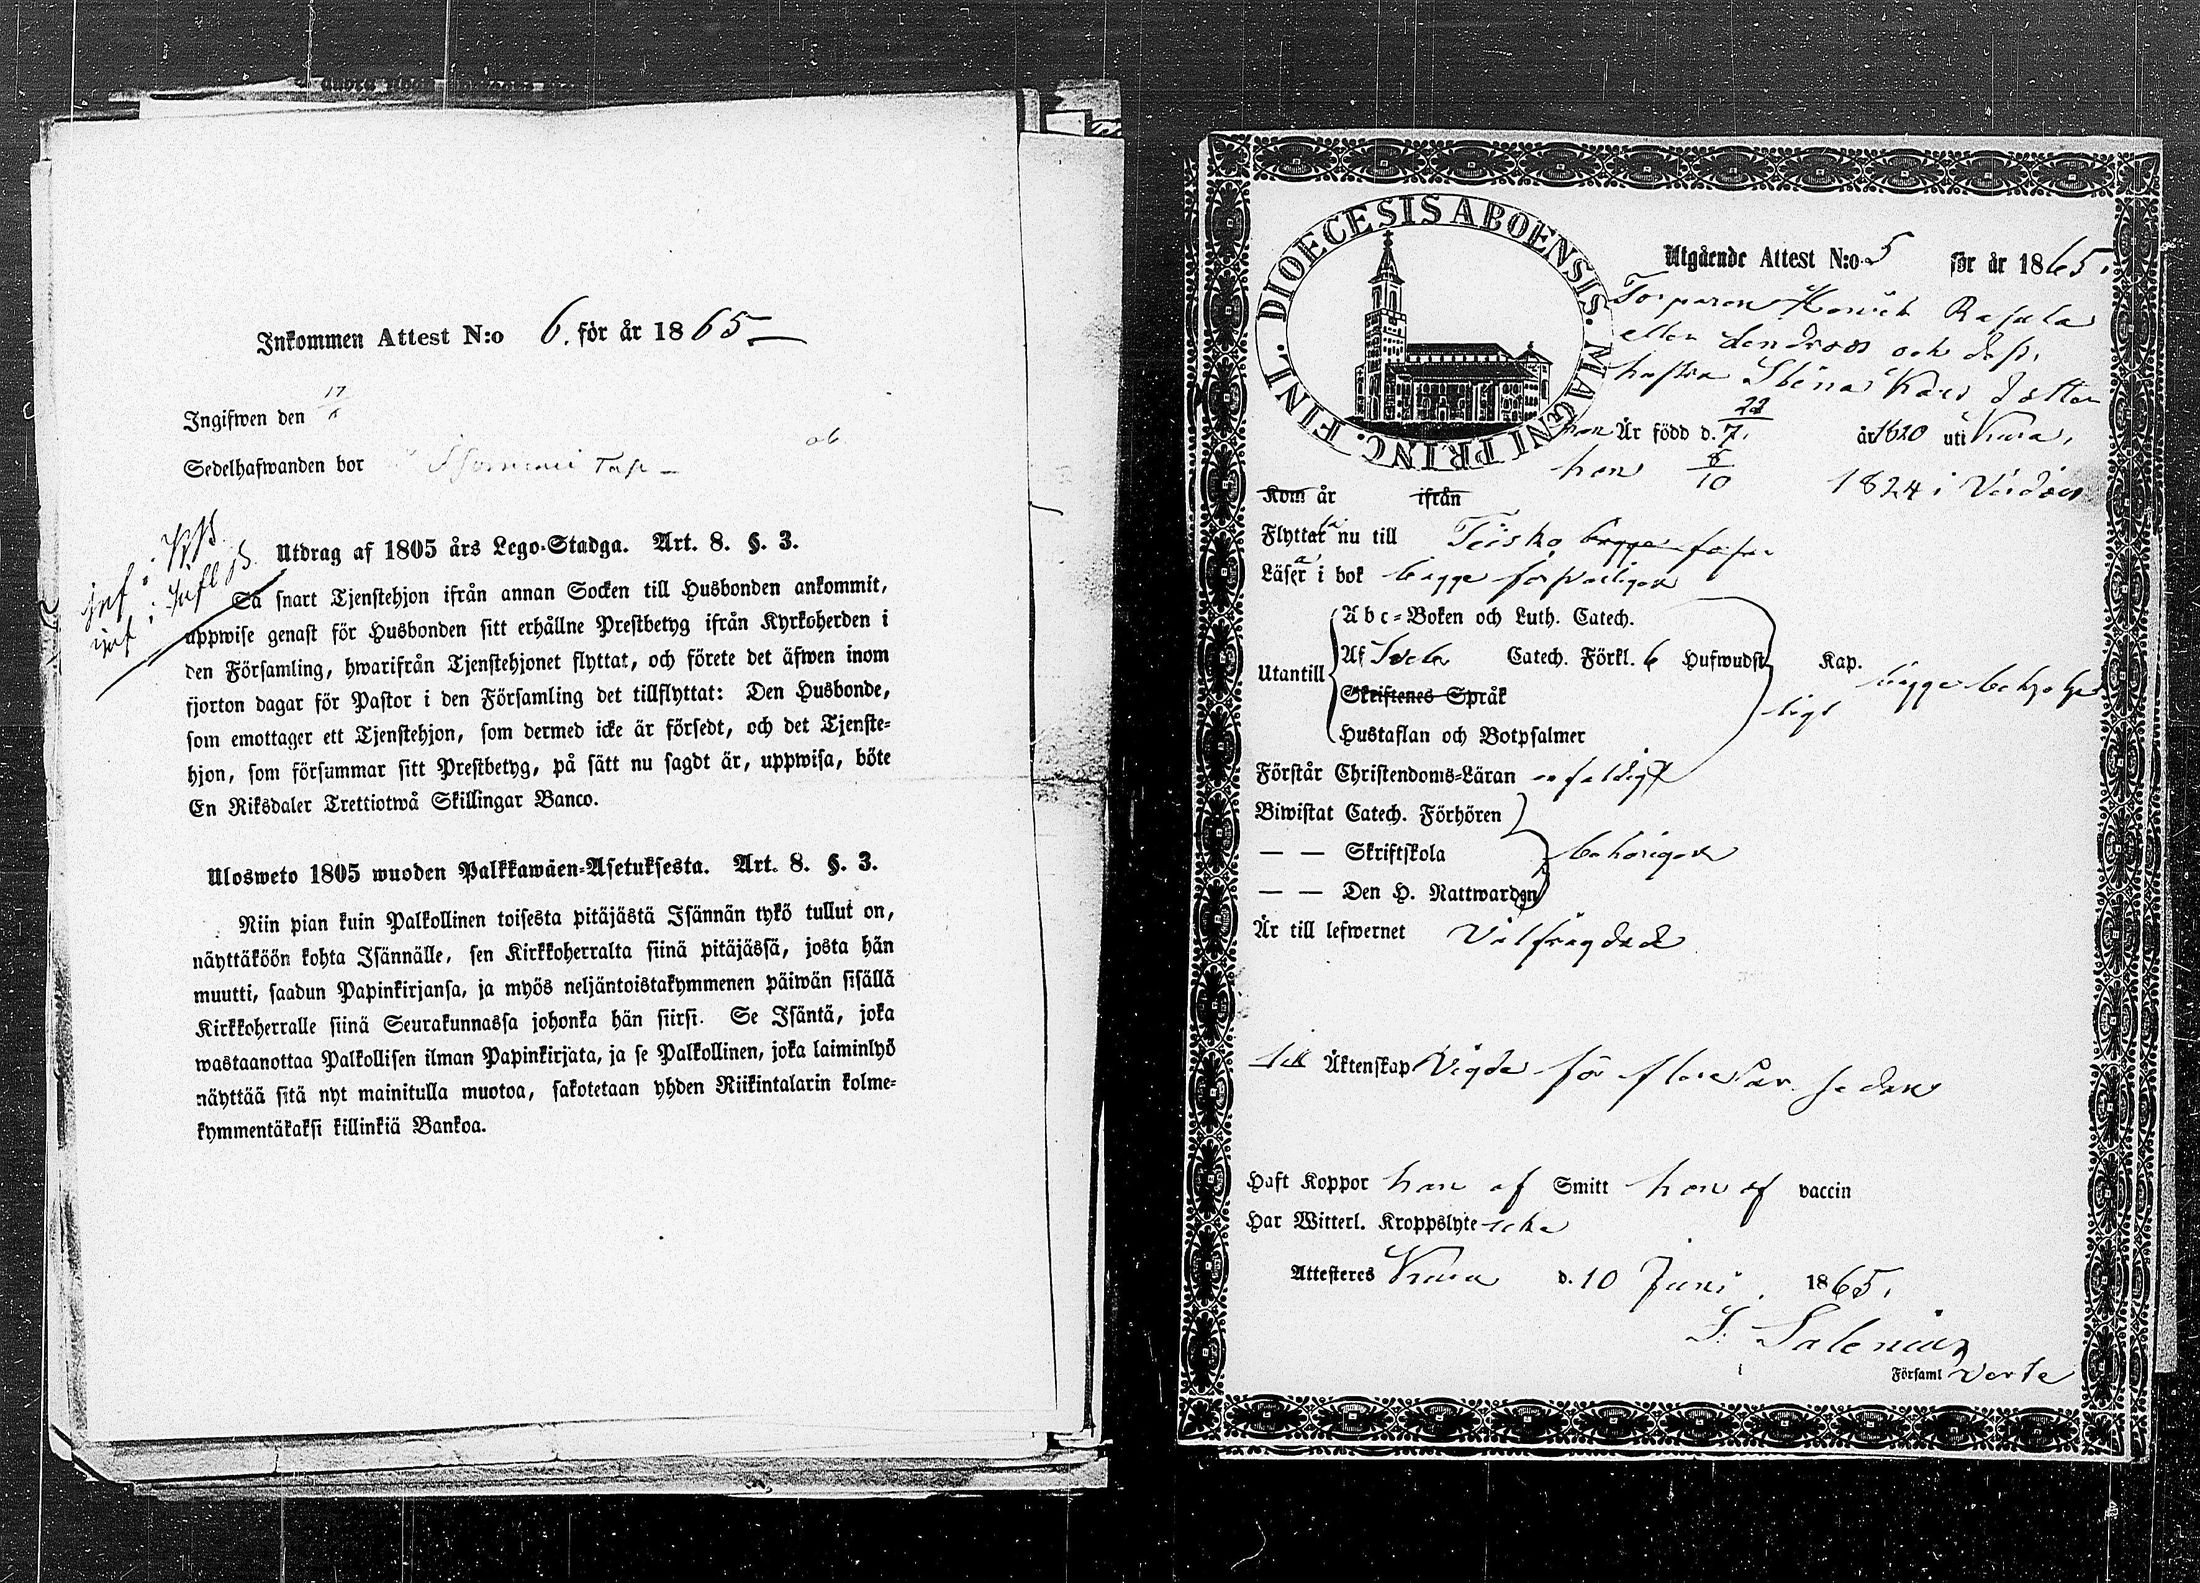 Inkommen Attest N:o 6. för år 1865
Ingifwen den 17/6
Sedelhafwanden bor
inf i KB.
inf i Infl B.
Utdrag af 1805 års Lego-Stadga. Art. 8. §. 3.
Så snart Tjenstehjon ifrån annan Socken till Husbonden ankommit,
uppwise genast för Husbonden sitt erhållne Prestbetyg ifrån Kyrkoherden i
den Församling, hwarifrån Tjenstehjonet flyttat, och förete det äfwen inom
fjorton dagar för Pastor i den Församling det tillflyttat: Den Husbonde,
som emottager ett Tjenstehjon, som dermed icke är försedt, och det Tjenste-
hjon, som försummar sitt Prestbetyg, på sätt nu sagdt är, uppwisa, böte
En Riksdaler Trettiotwå Skillingar Banco.
Ulosweto 1805 wuoden Palkkawäen-Asetuksesta. Art. 8. §. 3.
Niin pian kuin Palkollinen toisesta pitäjästä Isännän tykö tullut on,
näyttäköön kohta Isännälle, sen Kirkkoherralta siinä pitäjässä, josta hän
muutti, saadun Papinkirjansa, ja myös neljäntoistakymmenen päiwän sisällä
Kirkkoherralle siinä Seurakunnassa johonka hän siirsi. Se Isäntä, joka
wastaanottaa Palkollisen ilman Papinkirjata, ja se Palkollinen, joka laiminlyö
näyttää sitä nyt mainitulla muotoa, sakotetaan yhden Riikintalarin kolme-
kymmentäkaksi killinkiä Bankoa.
DIOECESIS ABOENSIS. MAGNI PRINC. FINL.
Utgående Attest N:o 5 för år 1865.
Torparen Henrik Rajala
eller Lendroos och dess
hustru Stina Kars dotter
han Är född d. 22/7. år 1820 uti Kiura,
hon 8/10 1824 i
Kom år ifrån
Flyttat nu till Teisko begge
Läser i bok begge försvarligen
Utantill
Abc-Boken och Luth. Catech.
Af Sveb. Catech. Förkl. 6 Hufwudst. Kap. begge behjelp
ligt
Skriftenes Språk
Hustaflan och Botpsalmer
Förstår Christendoms-Läran enfaldigt
Biwistat Catech. Förhören
— — Skriftskola behörigen
— — Den H. Nattwarden
Är till lefwernet Välfrägdad
till Äktenskap Vigde för flera år sedan
Haft Koppor han af Smitt hon af vaccin
Har Witterl. Kroppslyte icke
Attesteres d. 10 Juni 1865.
Salenius
Församl